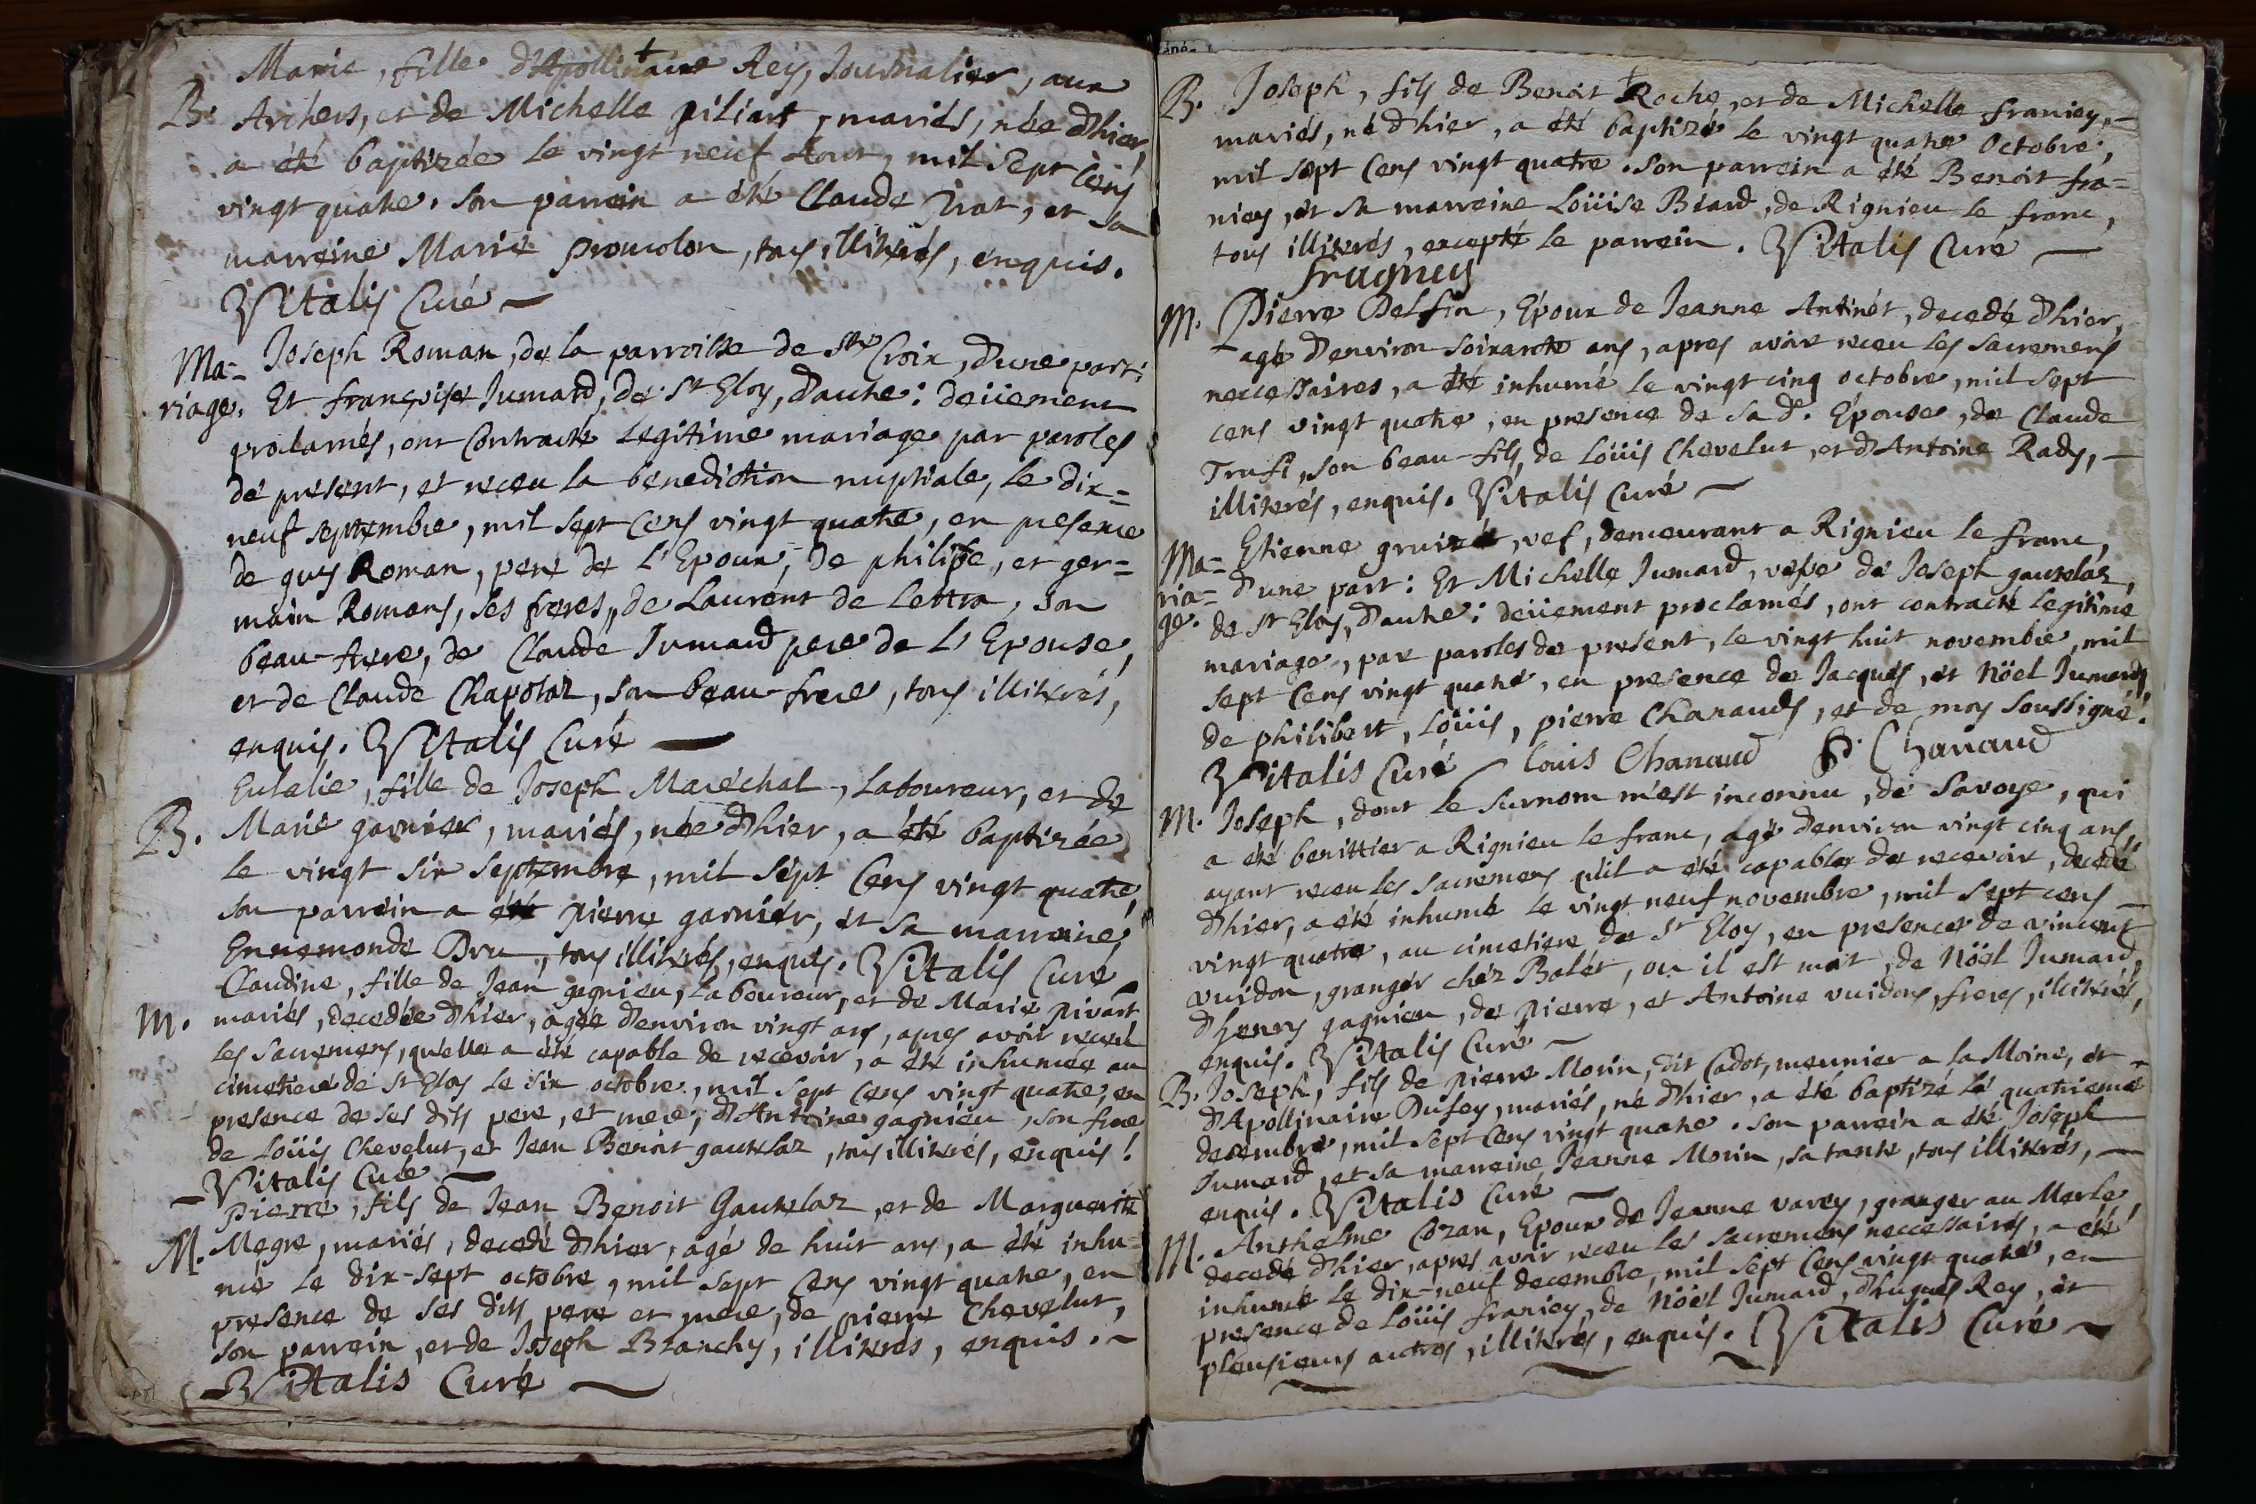 Marie, fille d'Apollinaire Rey, Journalier, aux
B. Archers, et de Michelle piliart, mariés, née d'hier,
a été baptizée le vingt neuf Aout, mil sept cens
vingt quatre. son parrein a été Claude Jirat, et sa
marreine Marie promolon, tous illiterés, enquis.
Vitalis Curé
Ma= Joseph Roman, de la parroisse de Ste Croix, d'une part:
riage. Et françoise Jumard, de St Eloy, d'autre: deüement
proclamés, ont contracté legitime mariage par paroles
de present, et receu la benediction nuptiale, le dix=
neuf septembre, mil sept cens vingt quatre, en presence
de guy Roman, pere de l'Epoux, de philipe, et ger=
main Romans, ses freres, de Laurent de Lettra, son
beau-frere, de Claude Jumard pere de l'Epouse,
et de Claude Chapolaz, son beau-frere, tous illiterés,
enquis. Vitalis Curé
Eulalie, fille de Joseph Maréchal, Laboureur, et de
B. Marie garnier, mariés, née d'hier, a été baptizée
le vingt six septembre, mil sept cens vingt quatre,
son parrein a été pierre garnier, et sa marreine,
Ennemonde Dru, tous illiterés, enquis. Vitalis Curé
Claudine, fille de Jean gagnieu, Laboureur, et de Marie pivart
M. mariés, decedée d'hier, agée d'environ vingt ans, apres avoir receu
les sacremens, qu'elle a été capable de recevoir, a été inhumée au
cimetiere de St Eloy le six octobre, mil sept cens vingt quatre, en
presence de ses dits pere, et mere, d'Antoine gagnieu, son frere
de Loüis Chevelut, et Jean Benoit gautelaz, tous illiterés, enquis!
Vitalis Curé
pierre, fils de Jean Benoit Gautelaz, et de Marguerite
M. Megre, mariés, decedé d'hier, agé de huit ans, a été inhu=
mé le dix-sept octobre, mil sept cens vingt quatre, en
presence de ses dits pere et mere, de pierre Chevelut,
son parrein, et de Joseph Branchy, illiterés, enquis.
Vitalis Curé
B. Joseph, fils de Benoit Roche, et de Michelle franiey,
mariés, né d'hier, a été baptizé le vingt quatre Octobre,
mil sept cens vingt quatre. son parrein a été Benoit fra=
niey, et sa marreine Loüise Biard, de Rignieu le franc,
tous illiterés, excepté le parrein. Vitalis Curé
fragney
M. Pierre Delfin, Epoux de Jeanne Antinet, decedé d'hier,
agé d'environ soixante ans, apres avoir receu les sacremens
neccessaires, a été inhumé le vingt cinq octobre, mil sept
cens vingt quatre, en presence de sa de. Epouse, de Claude
Trufi, son beau-fils, de Loüis Chevelut, et d'Antoine Rady,
illiterés, enquis. Vitalis Curé
Ma= Etienne gruizet, vef, demeurant a Rignieu le franc,
ria= d'une part: Et Michelle Jumard, vefve de Joseph gautelaz,
ge. de St Eloy, d'autre: deüement proclamés, ont contracté legitime
mariage, par paroles de present, le vingt huit novembre, mil
sept cens vingt quatre, en presence de Jacques, et Nöel Jumards
de philibert, Loüis, pierre Chanauds, et de moy soussigné.
Vitalis Curé Louis Chanaud P. Chanaud
M. Joseph, dont le surnom m'est inconnu, de Savoye, qui
a été benittier a Rignieu le franc, agé d'environ vingt cinq ans,
ayant receu les sacremens qu'il a été capable de recevoir, decedé
d'hier, a été inhumé le vingt neuf novembre, mil sept cens
vingt quatre, au cimetiere de St Eloy, en presence de vincent
vuidon, granger chez Balet, ou il est mort, de Nöel Jumard,
d'henry gagnieu, de pierre, et Antoine vuidons, freres, illiterés,
enquis. Vitalis Curé
B. Joseph, fils de pierre Morin, dit Cadot, meunier a la Moine, et
d'Apollinaire Dufey, mariés, né d'hier, a été baptizé le quatrieme
decembre, mil sept cens vingt quatre. son parrein a été Joseph
Jumard, et sa marreine Jeanne Morin, sa tante, tous illiterés,
enquis. Vitalis Curé
M. Anthelme Cozan, Epoux de Jeanne varey, granger au Merle
decedé d'hier, apres avoir receu les sacremens neccessaires, a été
inhumé le dix-neuf decembre, mil sept cens vingt quatre, en
presence de Loüis franiey, de Nöel Jumard, d'hugues Rey, et
plousieurs autres, illiterés, enquis. Vitalis Curé